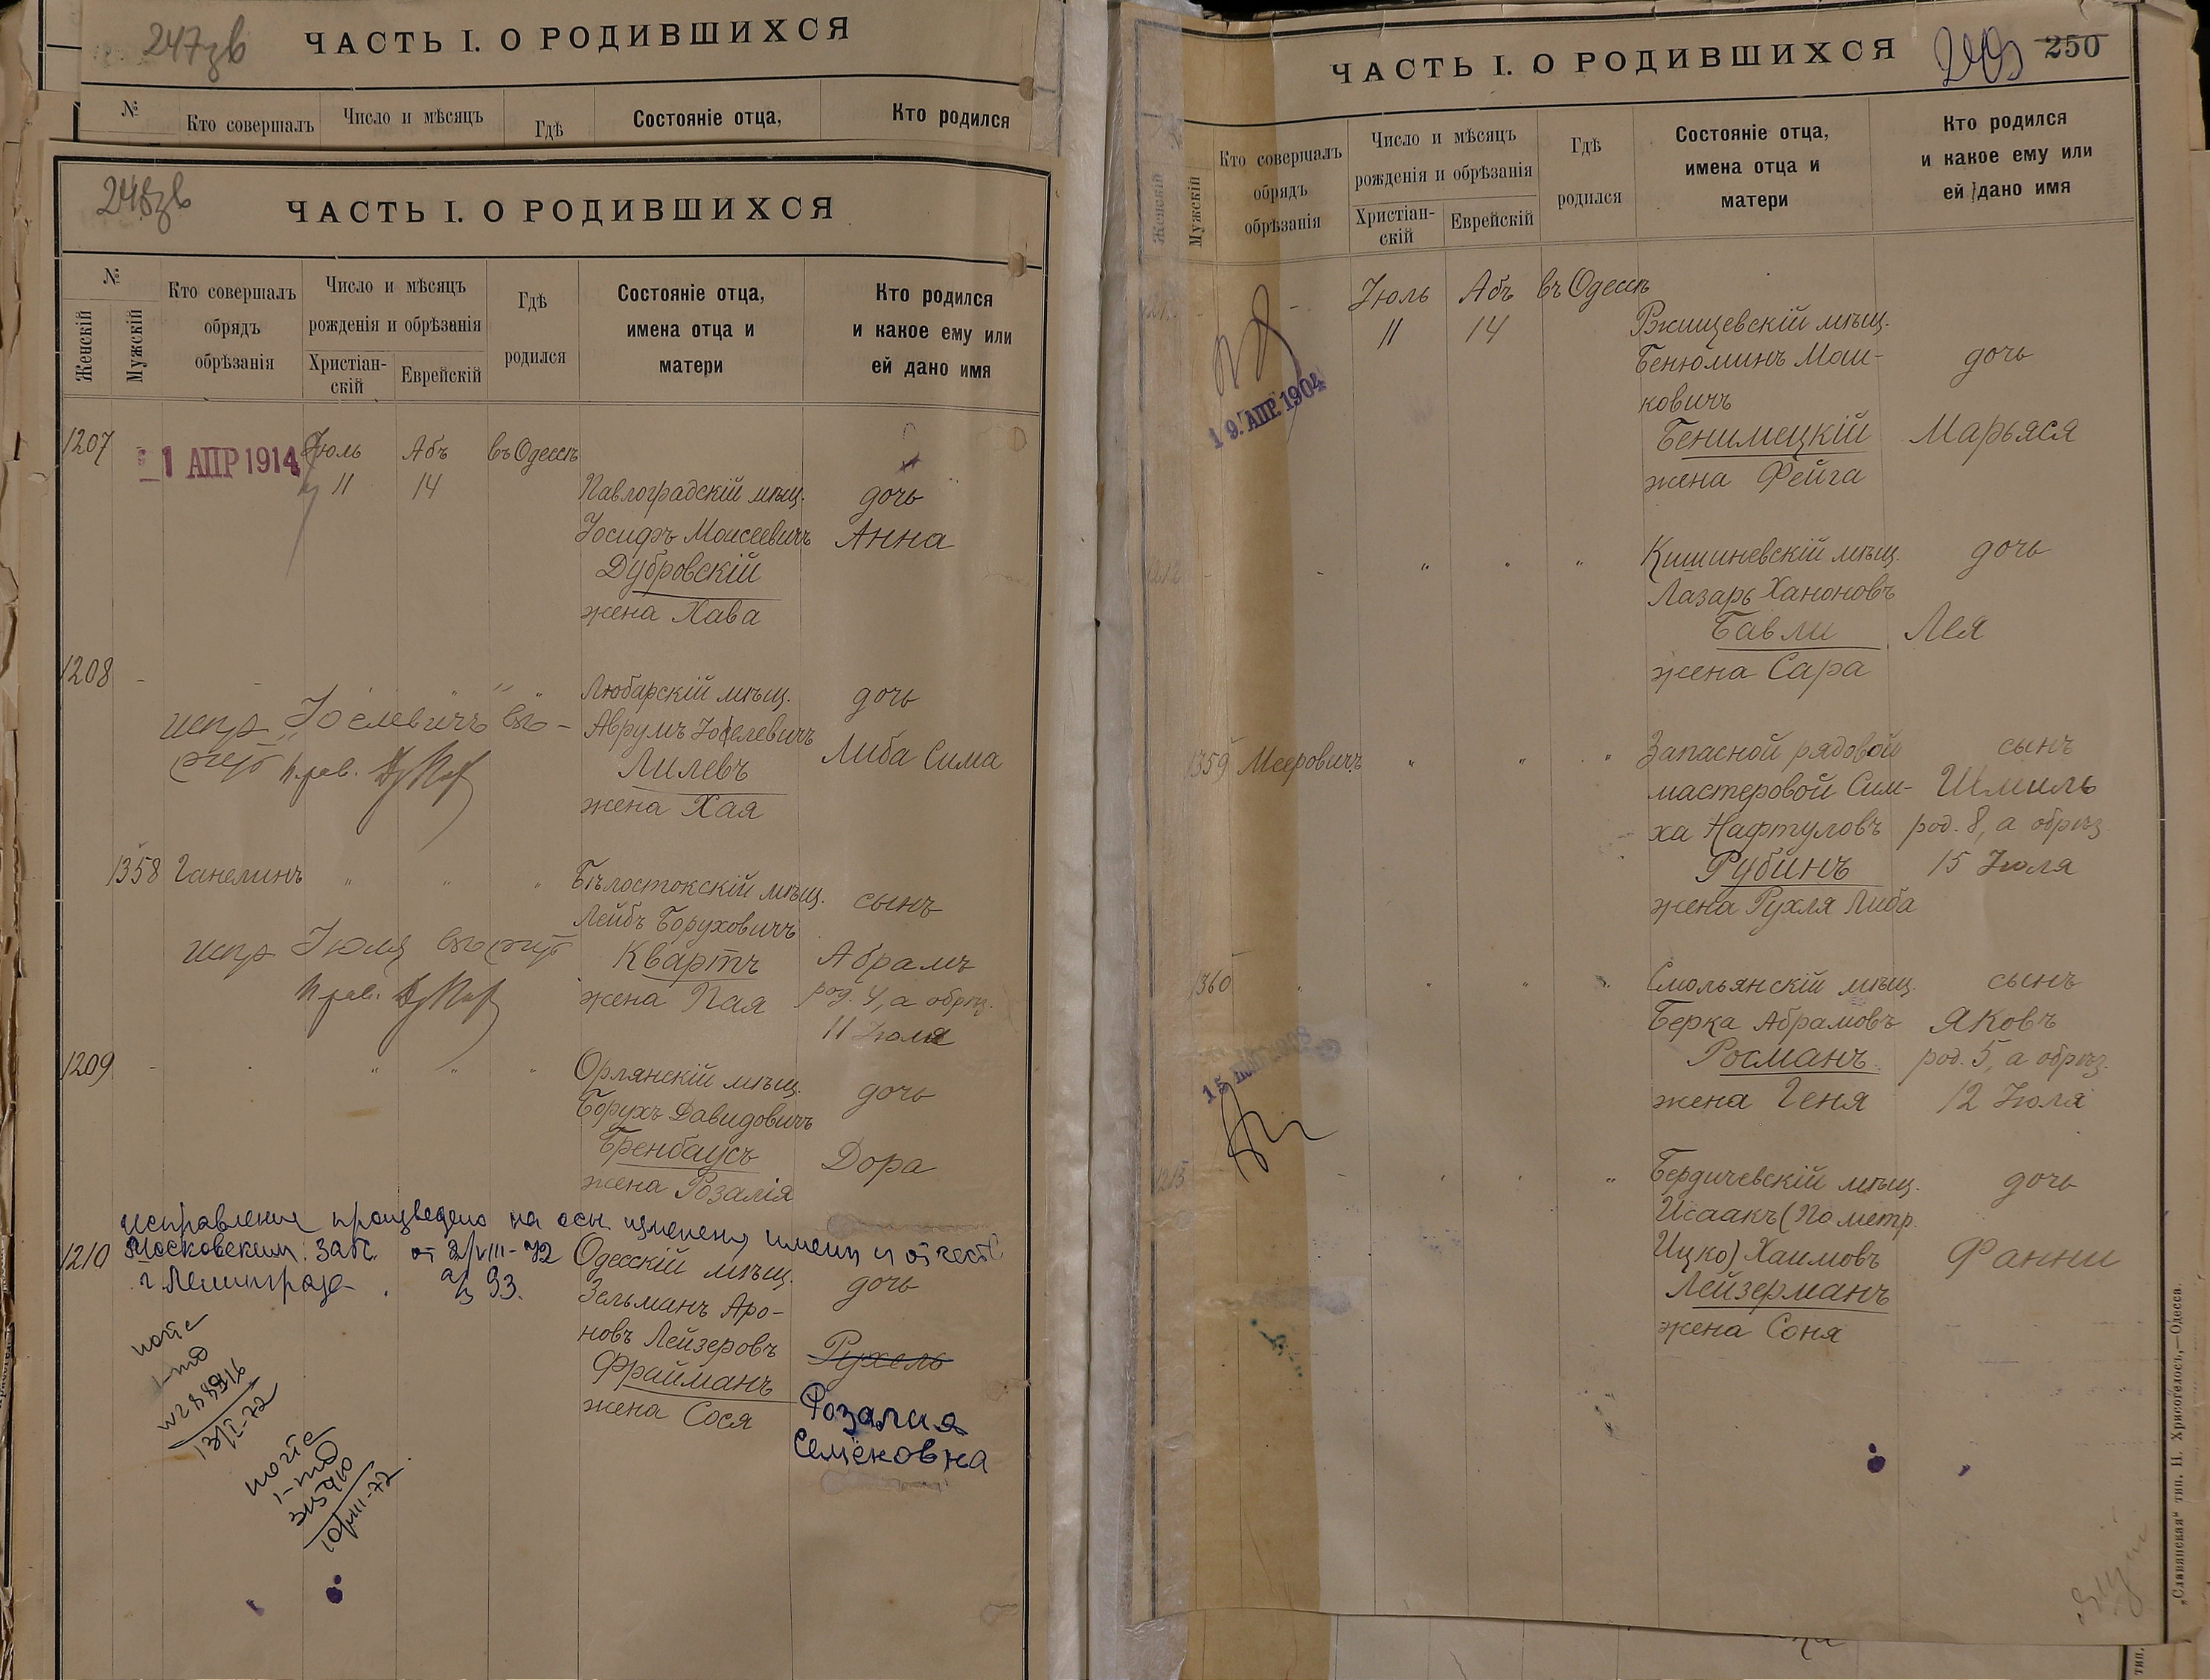 247зв
ЧАСТЬ I. О РОДИВШИХСЯ
№
Кто совершалъ
Число и мѣсяцъ
Гдѣ
Состояніе отца,
Кто родился
248зв
ЧАСТЬ I. О РОДИВШИХСЯ
№
Женскій
Мужскій
Кто совершалъ
обрядъ
обрѣзанія
Число и мѣсяцъ
рожденія и обрѣзанія
Христіан-
скій
Еврейскій
Гдѣ
родился
Состояніе отца,
имена отца и
матери
Кто родился
и какое ему или
ей дано имя
1207
1 АПР 1914
Іюль Абъ въ Одессѣ
11 14
Павлоградскій мѣщ. дочь
Іосифъ Моисеевичъ Анна
Дубровскій
жена Хава
1208
Любарскій мѣщ. дочь
Аврумъ Іоселевичъ
Либа Сима
Лилевъ
жена Хая
испр. "Іоселевичъ"
1358 Ганелинъ " " "
Бѣлостокскій мѣщ. сынъ
Лейбъ Боруховичъ
Квартъ Абрамъ
жена Пая род. 4, а обрѣз.
11 Іюля
испр Іюля
1209 - " " "
Орлянскій мѣщ. дочь
Борухъ Давидовичъ
Бренбаусъ Дора
жена Розалія
исправления произведено на осн. изменения имени и отчества
Московским ЗАГС от 2/VIII-72
г. Ленинграда а/з 93.
1210
Одесскій мѣщ. дочь
Зельманъ Аро-
новъ Лейзеровъ Рухель
Фрайманъ
жена Сося
Розалия
Семёновна
13/I-72
10/VIII-72
ЧАСТЬ I. О РОДИВШИХСЯ
250
Женскій
Мужскій
Кто совершалъ
обрядъ
обрѣзанія
Число и мѣсяцъ
рожденія и обрѣзанія
Христіан-
скій
Еврейскій
Гдѣ
родился
Состояніе отца,
имена отца и
матери
Кто родился
и какое ему или
ей дано имя
Іюль Абъ въ Одессѣ
11 14
19 АПР. 1904
Ржищевскій мѣщ.
Бенюминъ Мош-
дочь
ковичъ
Бенимецкій Марьяся
жена Фейга
1212 - - " " "
Кишиневскій мѣщ. дочь
Лазарь Ханоновъ
Бавли Лея
жена Сара
1359 Мееровичъ " " "
Запасной рядовой сынъ
мастеровой Сим- Шмиль
ха Нафтуловъ род. 8, а обрѣз.
Рубинъ 15 Іюля
жена Рухля Либа
1360 " " " "
Смольянскій мѣщ. сынъ
Берка Абрамовъ Яковъ
Росманъ род. 5, а обрѣз.
жена Геня 12 Іюля
Бердичевскій мѣщ. дочь
Исаакъ (по метр.
Ицко) Хаимовъ Фанни
Лейзерманъ
жена Соня
„Славянская“ тип. Н. Хрисогелосъ,—Одесса.